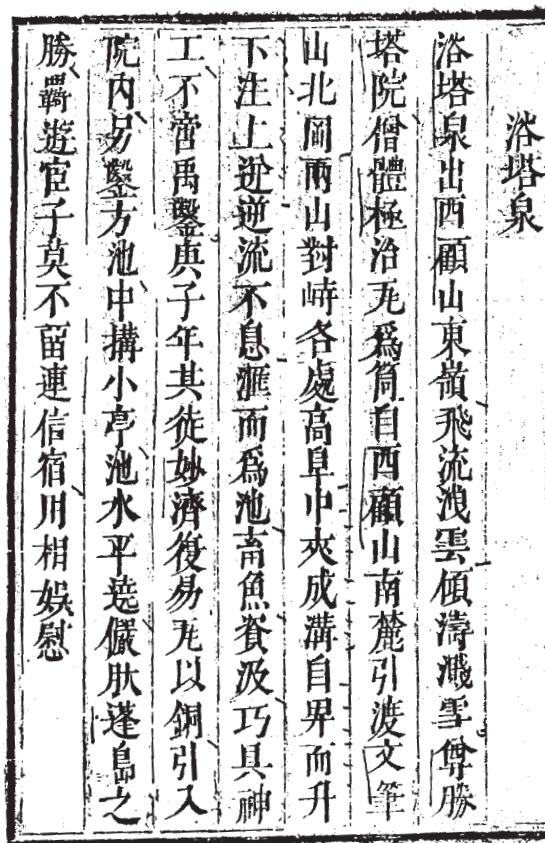 浴塔泉
浴塔泉出西顧山東嶺飛流洩雲傾濤濺雪尊勝
塔院僧體極治瓦爲筒自西顧山南麓引渡文筆
山北岡兩山對峙各處高阜中夾成溝自畀而升
下注上迸逆流不息滙而爲池畜魚資汲巧具神
工不啻禹鑿庚子年其徒妙濟復易瓦以銅引入
院內另鑿方池中搆小亭池水平遶儼肰蓬島之
勝羇遊宦子莫不留連信宿用相娛慰